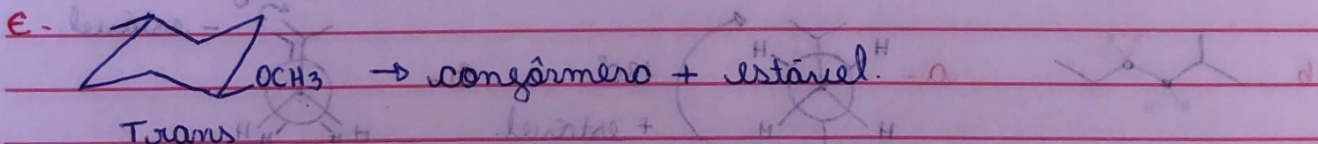 E. OCH3 → confôrmero + estável.
Trans